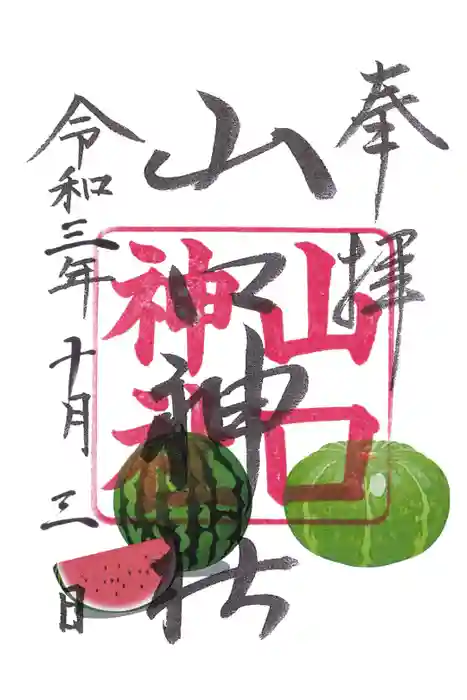 奉拝
山口神社
山口
神社
令和三年十月三日